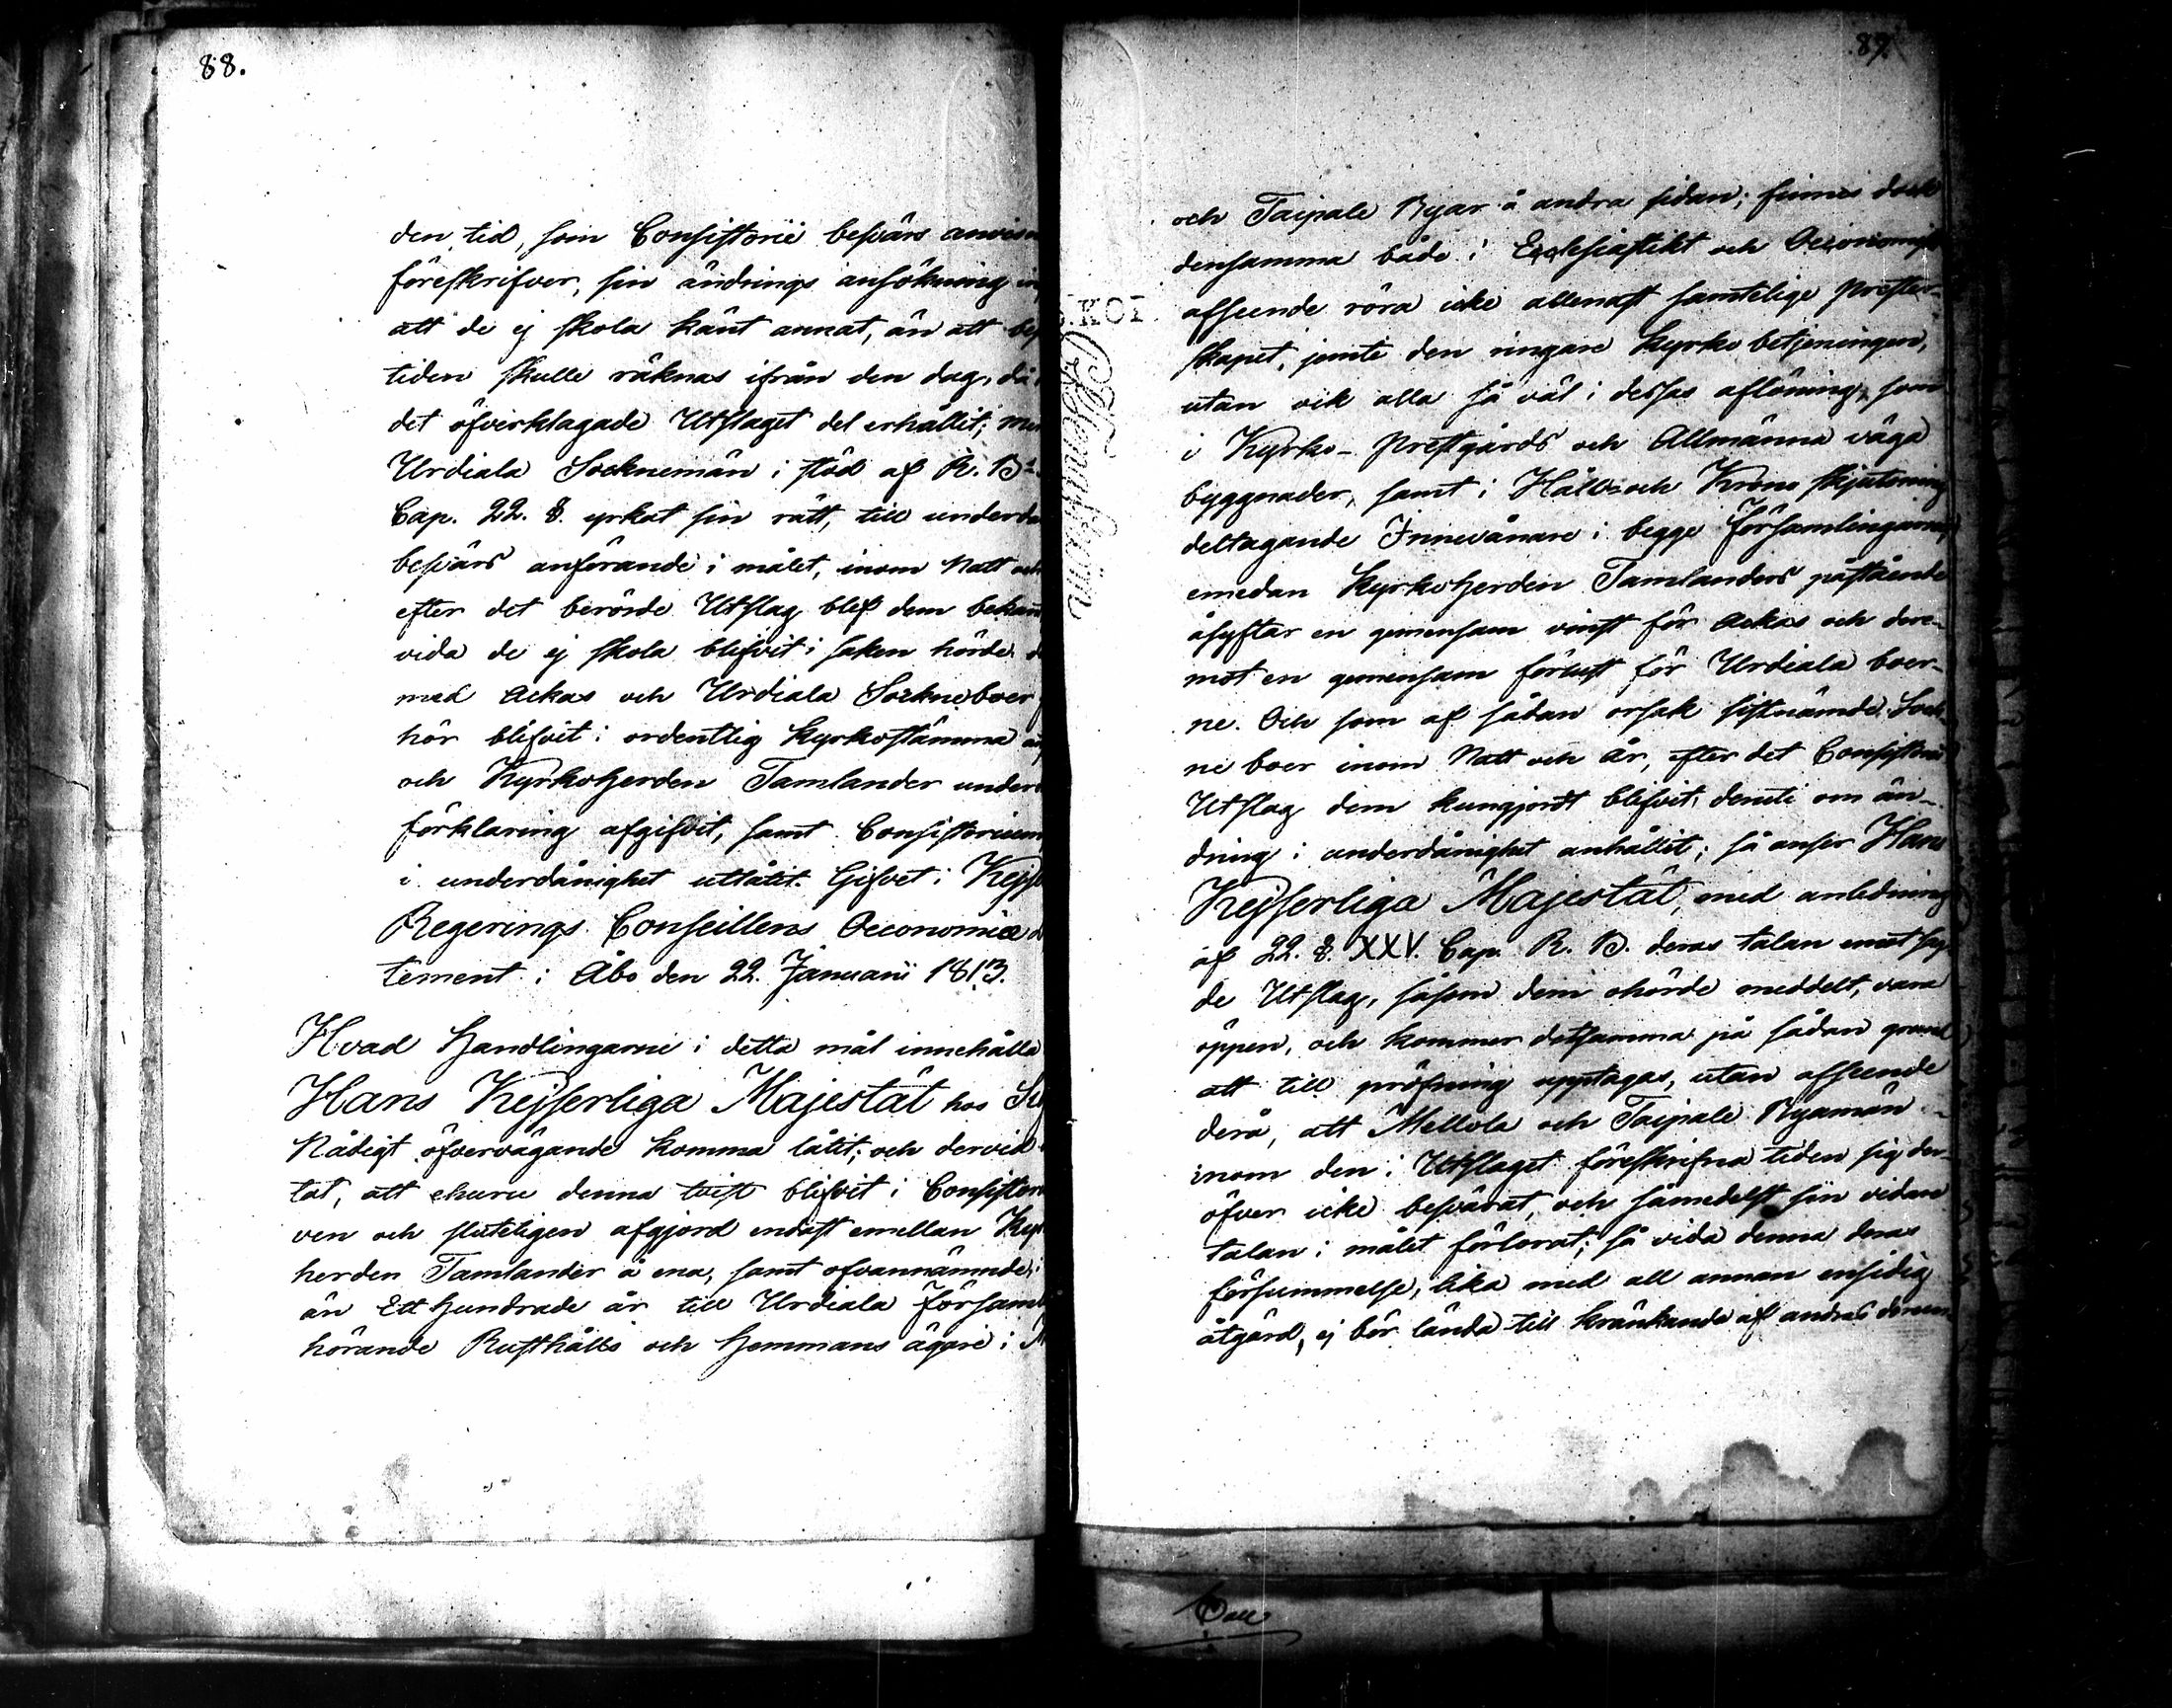 88.
den tid, som Consistorii besvärs anvis
föreskrifver, sin ändrings ansökning in
att de ej skola känt annat, än att bes
tiden skulle räknas ifrån den dag, då
det öfverklagade Utslaget del erhållit; me
Urdiala Socknemän i stöd af R. B.
Cap. 22. §. yrkat sin rätt, till underdå
besvärs anförande i målet, inom Natt och
efter det berörde Utslag blef dem bekan
vida de ej skola blifvit i saken hörde
med Ackas och Urdiala Sockneboer
hör blifvit i ordentlig Kyrkostämma
och Kyrkoherden Tamlander under
förklaring afgifvit, samt Consistorium
i underdånighet utlåtit. Gifvet i Kejs
Regerings Conseillens Oeconomie
tement i Åbo den 22. Januarii 1813.
Hvad Handlingarne i detta mål innehålla
Hans Kejserliga Majestät hos
Nådigt öfvervägande komma låtit; och dervid
tat, att ehuru denna tvist blifvit i Consistor
ven och sluteligen afgjord endast emellan Kyr
herden Tamlander å ena, samt ofvannämnde,
än Ett hundrade år till Urdiala Församl
hörande Rusthålls och Hemmans ägare i
89.
och Taipale Byar å andra sidan; finnes dock
densamma både i Ecclesiastikt och Oeconomiskt
afseende röra icke allenast samtelige Prester-
skapet, jemte den ringare Kyrko betjeningen,
utan ock alla så väl i dessas aflöning, som
i Kyrko- Prestgårds och Allmänna väga
byggnader, samt i Hålls och Krono skjutsning
deltagande Innevånare i begge Församlingarne,
emedan Kyrkoherden Tamlanders påstående
åsyftar en gemensam vinst för Ackas och dere-
mot en gemensam förlust för Urdiala boer-
ne. Och som af sådan orsak sistnämde Sock-
ne boer inom Natt och år, efter det Consistorii
Utslag dem kungjordt blifvit, deruti om än-
dring i underdånighet anhållit; så anser Hans
Kejserliga Majestät, med anledning
af 22. §. XXV. Cap. R. B. deras talan emot
de Utslag, såsom dem ohörde meddelt, vara
öppen, och kommer detsamma på sådan grund
att till pröfning upptagas, utan afseende
derå, att Mellola och Taipale Byamän
inom den i Utslaget föreskrifna tiden sig der-
öfver icke besvärat, och såmedelst sin vidare
talan i målet förlorat; så vida denna deras
försummelse, lika med all annan ensidig
åtgärd, ej bör lända till kränkande af andras